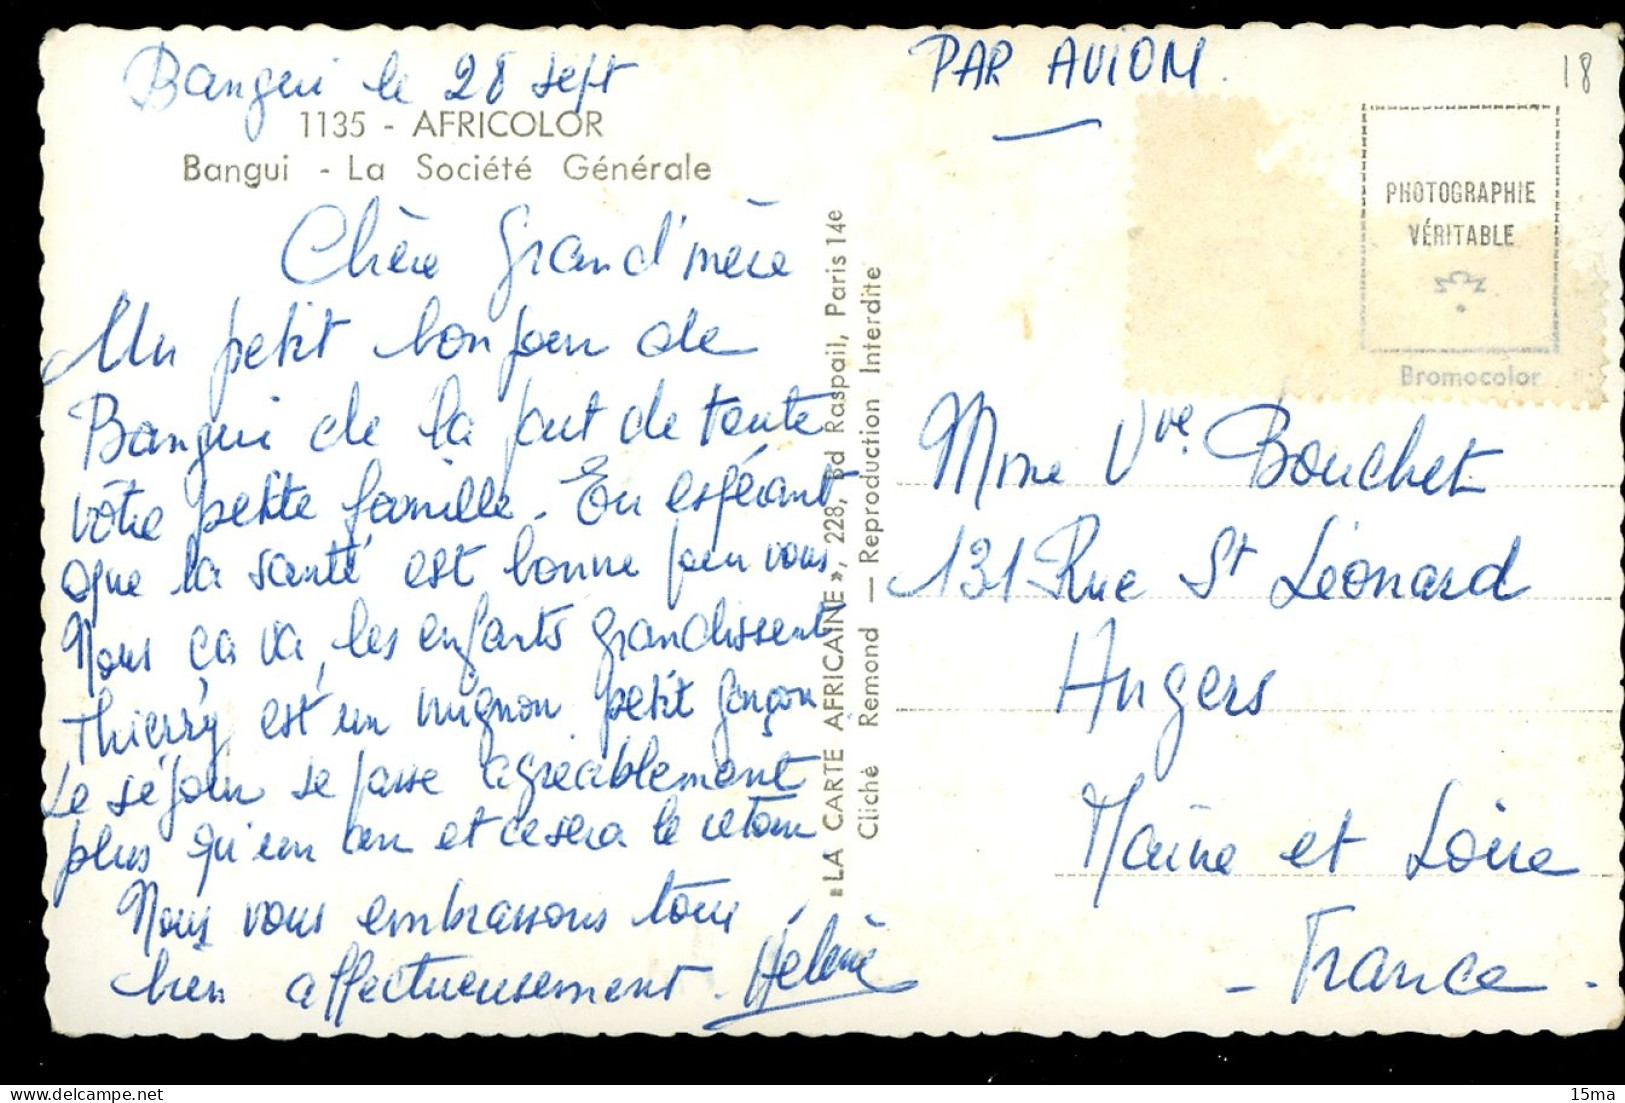 Bangui le 28 sept
1135 - AFRICOLOR
Bangui - La Société Générale
Chère Grand'mère
Un petit bonjour de
Bangui de la part de toute
vôtre petite famille. En espérant
que la santé est bonne pour vous
Nous ça va, les enfants grandissent
Thierry est un mignon petit garçon
Le séjour se passe agréablement
plus qu'un an et ce sera le retour
Nous vous embrassons tous
bien affectueusement. Hélène
"LA CARTE AFRICAINE", 228, Bd Raspail, Paris 14e
Cliché Remond — Reproduction Interdite
PAR AVION.
18
PHOTOGRAPHIE
VÉRITABLE
Bromocolor
Mme Vve. Bouchet
131 Rue St Léonard
Angers
Maine et Loire
- France -
15ma